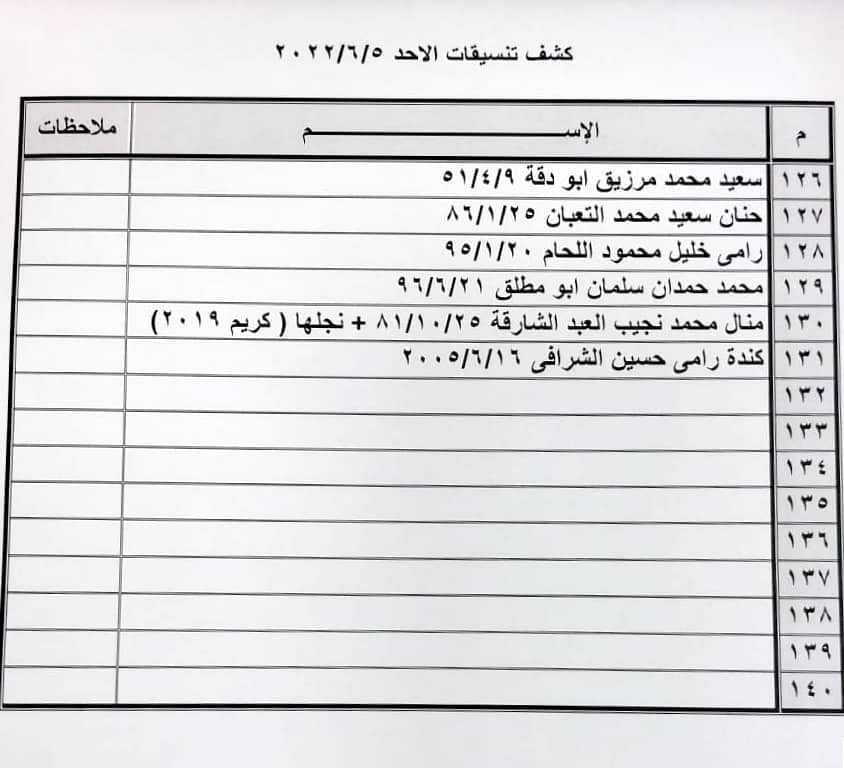 كشف تنسيقات الاحد ٢٠٢٢/٦/٥
م الإســـــــــــــــــــم ملاحظات
١٢٦ سعيد محمد مرزيق ابو دقة ٥١/٤/٩
١٢٧ حنان سعيد محمد التعبان ٨٦/١/٢٥
١٢٨ رامى خليل محمود اللحام ٩٥/١/٢٠
١٢٩ محمد حمدان سلمان ابو مطلق ٩٦/٦/٢١
١٣٠ منال محمد نجيب العبد الشارقة ٨١/١٠/٢٥ + نجلها ( كريم ٢٠١٩)
١٣١ كندة رامى حسين الشرافى ٢٠٠٥/٦/١٦
١٣٢
١٣٣
١٣٤
١٣٥
١٣٦
١٣٧
١٣٨
١٣٩
١٤٠